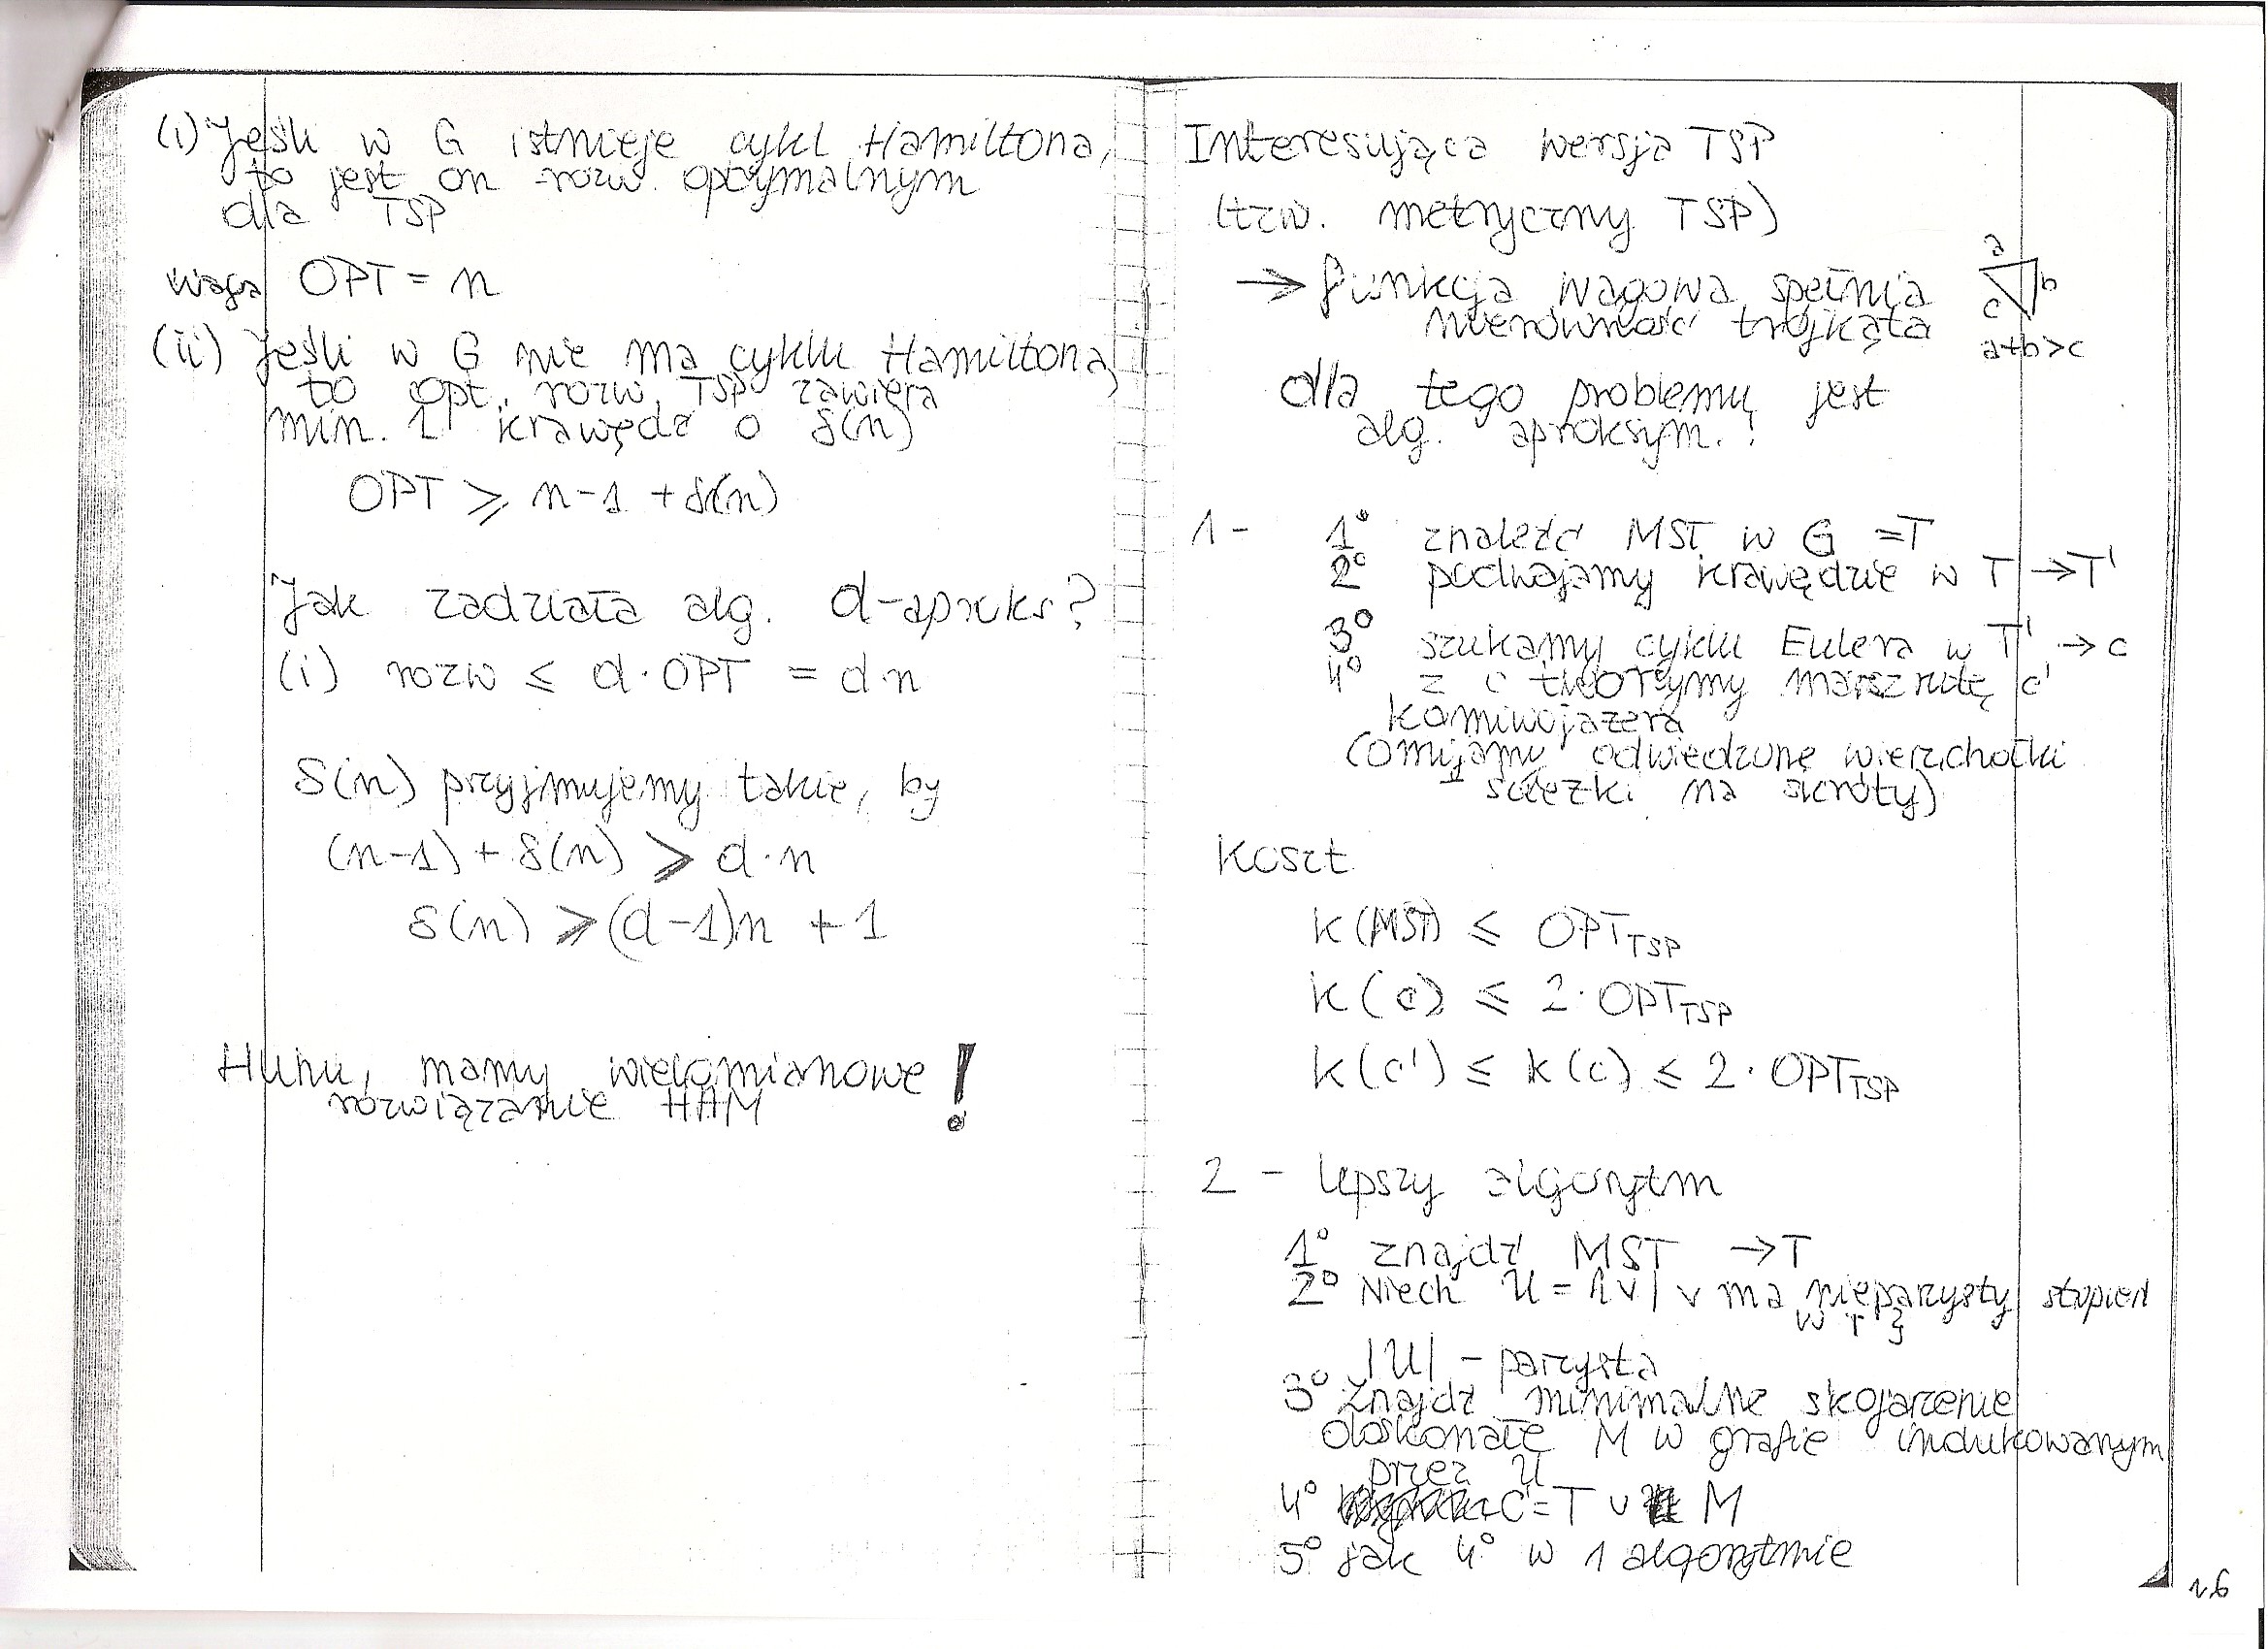 (i) Jeśli w G istnieje cykl Hamiltona,
to jest on rozw. optymalnym
dla TSP
waga OPT = n
(ii) Jeśli w G nie ma cyklu Hamiltona,
to opt. rozw. TSP zawiera
min. 1 krawędź o δ(n)
OPT ⩾ n-1 + δ(n)
Jak zadziała alg. d-aproks?
(i) rozw ≤ d·OPT = d·n
δ(n) przyjmujemy takie, by
(n-1) + δ(n) ⩾ d·n
δ(n) ⩾ (d-1)n + 1
Huhu, mamy wielomianowe
rozwiązanie HAM !
Interesująca wersja TSP
(tzw. metryczny TSP)
→ funkcja wagowa spełnia
nierówność trójkąta
a
b
c
a+b>c
dla tego problemu jest
alg. aproksym.!
1 - 1° znaleźć MST w G = T
2° podwajamy krawędzie w T → T'
3° szukamy cyklu Eulera w T' → c
4° z c tworzymy marszrutę c'
komiwojażera
(omijamy odwiedzone wierzchołki
ścieżki na skróty)
Koszt
k(MST) ≤ OPT_TSP
k(c) ≤ 2·OPT_TSP
k(c') ≤ k(c) ≤ 2·OPT_TSP
2 - lepszy algorytm
1° znajdź MST → T
2° Niech U = {v | v ma nieparzysty stopień
w T}
|U| - parzysta
3° Znajdź minimalne skojarzenie
doskonałe M w grafie indukowanym
przez U
4° C = T ∪ M
5° jak 4° w 1 algorytmie